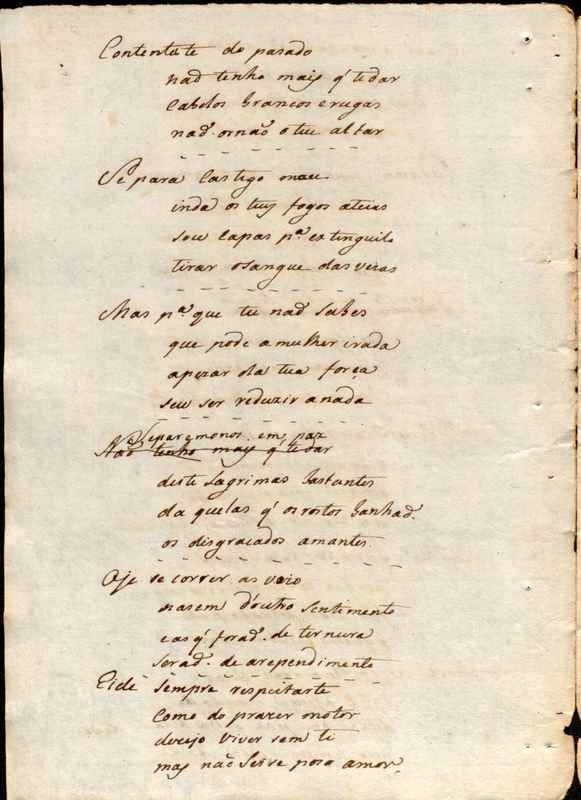 Contentate do pasado
nad tenho mais q' te dar
Cabelos brancos e rugas
nad. ornão o teu altar
Se para Castigo meu
inda os teus fogos ateias
sou Capas pª. extinguilo
tirar o sangue das veias
Mas pª. que tu nad sabes
que pode a mulher irada
apezar da tua força
seu ser reduzir a nada
Separemonos em paz
Nad tenho mais q' te dar
deste Lagrimas bastantes
da quelas q' os rostos banhad.
os disgracados amantes.
Oje se correr as vejo
nasem d'outro sentimento
e as q' forad. de ternura
serad. de arependimento
Eide sempre respeitarte
Como do prazer motor
dezejo viver sem ti
mas não Serve para amor.